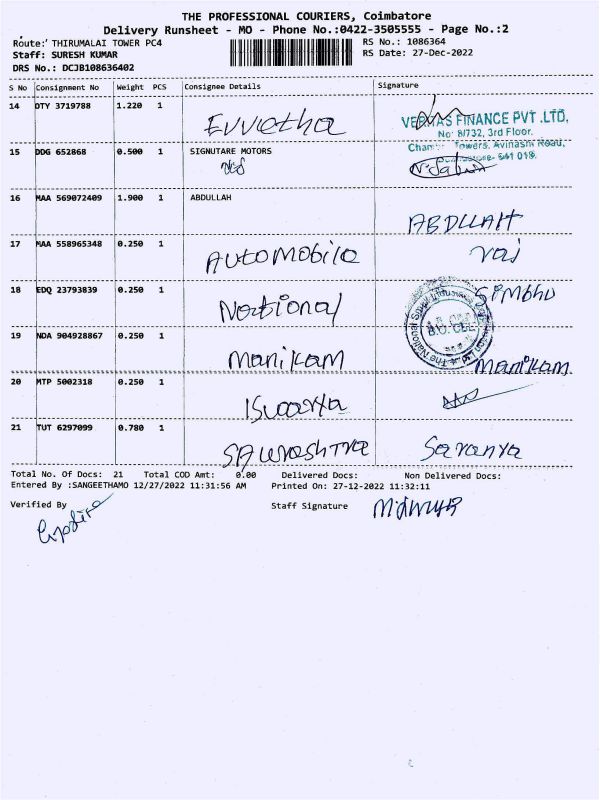 THE PROFESSIONAL COURIERS, Coimbatore
Delivery Runsheet - MO - Phone No.:0422-3505555 - Page No.:2
Route: THIRUMALAI TOWER PC4 RS No.: 1086364
Staff: SURESH KUMAR RS Date: 27-Dec-2022
DRS No.: DCJB108636402
S No Consignment No Weight PCS Consignee Details Signature
14 DTY 3719788 1.220 1 Evvetha
FINANCE PVT .LTD,
No: 8/732, 3rd Floor,
Towers, Avinashi Road,
641 018.
15 DDG 652868 0.500 1 SIGNUTARE MOTORS
16 MAA 569072409 1.900 1 ABDULLAH ABDLLAH
17 MAA 558965348 0.250 1 Automobile raj
18 EDQ 23793839 0.250 1 National Simbhu
19 NDA 904928867 0.250 1 Manikam Manikam
20 MTP 5002318 0.250 1 Iswarya
21 TUT 6297099 0.780 1 SAurashtra Saranya
Total No. Of Docs: 21 Total COD Amt: 0.00 Delivered Docs: Non Delivered Docs:
Entered By :SANGEETHAMO 12/27/2022 11:31:56 AM Printed On: 27-12-2022 11:32:11
Verified By Staff Signature